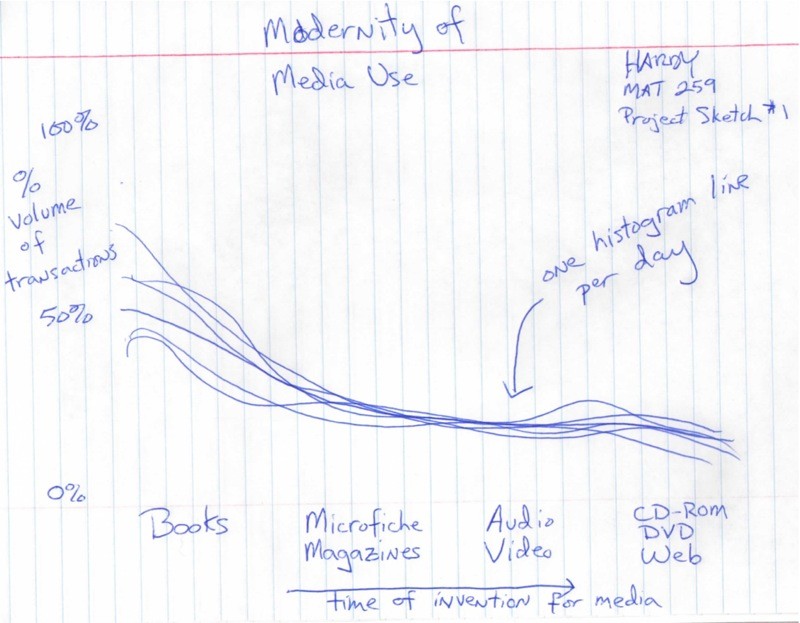 Modernity of
Media Use
HARDY
MAT 259
Project Sketch #1
100%
%
volume
of
transactions
50%
0%
one histogram line
per day
Books
Microfiche
Magazines
Audio
Video
CD-Rom
DVD
Web
time of invention for media